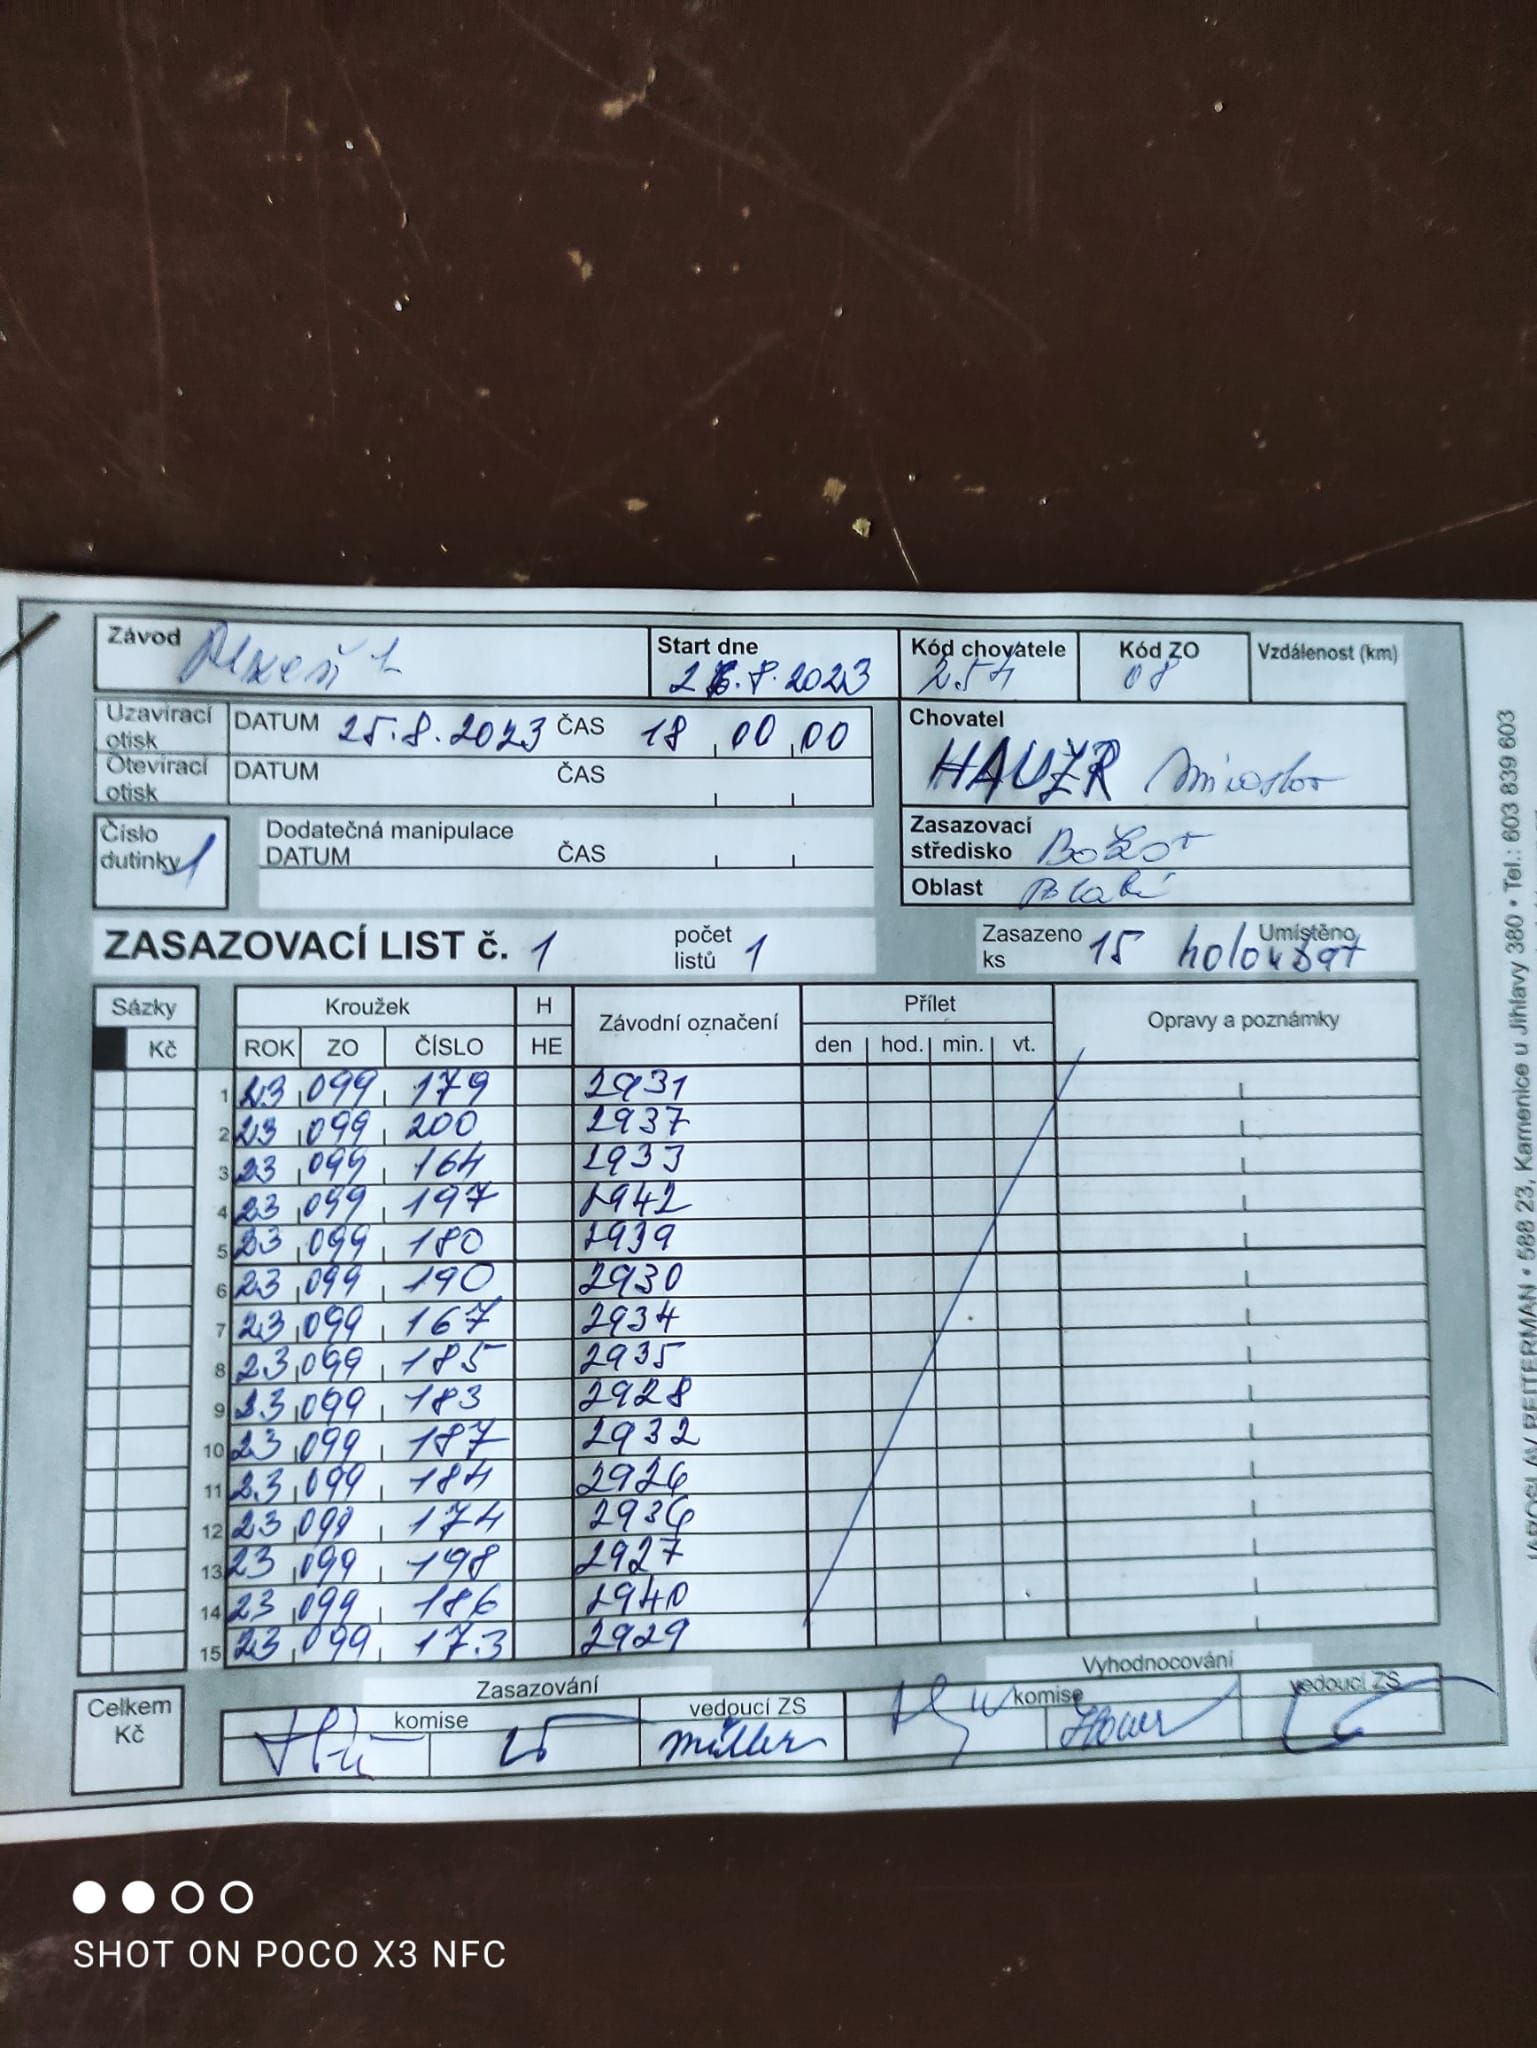 Závod Plzeň 1
Start dne 26.8.2023
Kód chovatele 254
Kód ZO 08
Vzdálenost (km)
Uzavírací otisk DATUM 25.8.2023 ČAS 18 00 00
Otevírací otisk DATUM ČAS
Chovatel
HAUZR Miroslav
Číslo dutinky 1
Dodatečná manipulace
DATUM ČAS
Zasazovací středisko
Oblast
ZASAZOVACÍ LIST č. 1 počet listů 1
Zasazeno ks 15 holoubat Umístěno
Sázky Kroužek H Závodní označení Přílet Opravy a poznámky
Kč ROK ZO ČÍSLO HE den hod. min. vt.
1 23 099 179 2931
2 23 099 200 2937
3 23 099 164 2933
4 23 099 197 2942
5 23 099 180 2939
6 23 099 190 2930
7 23 099 167 2934
8 23 099 185 2935
9 23 099 183 2928
10 23 099 187 2932
11 23 099 184 2926
12 23 099 174 2936
13 23 099 198 2927
14 23 099 186 2940
15 23 099 173 2929
Celkem Kč
Zasazování Vyhodnocování
komise vedoucí ZS komise vedoucí ZS
Müller
REITERMAN • 588 23, Kamenice u Jihlavy 380 • Tel.: 603 839 603
SHOT ON POCO X3 NFC